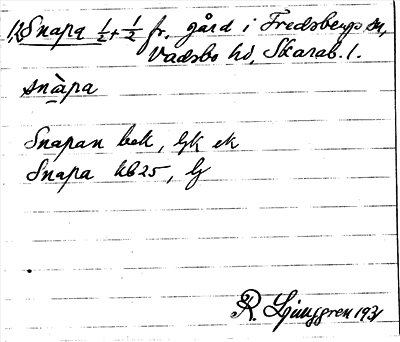 1,2 Snapa ½+½ fr. gård i Fredsbergs sn,
Vadsbo hd, Skarab. l.
snàpa
Snapan bek, GK ek
Snapa HB25, G
R. Ljunggren 1931